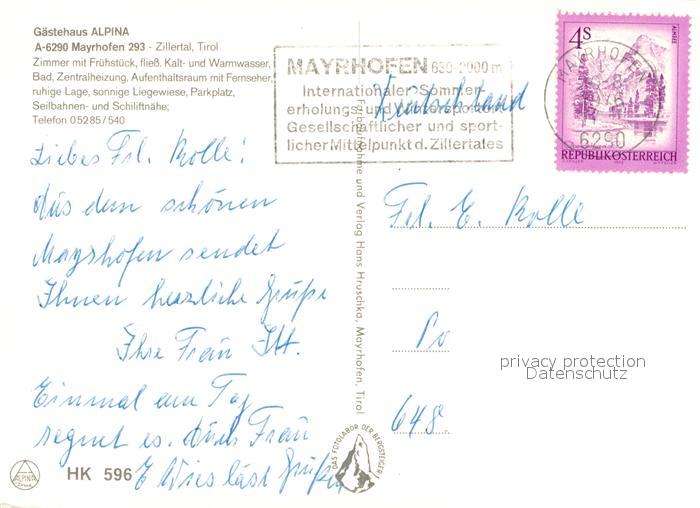 Gästehaus ALPINA
A-6290 Mayrhofen 293 - Zillertal, Tirol
Zimmer mit Frühstück, fließ. Kalt- und Warmwasser,
Bad, Zentralheizung, Aufenthaltsraum mit Fernseher,
ruhige Lage, sonnige Liegewiese, Parkplatz,
Seilbahnen- und Schiliftnähe;
Telefon 05285/540
MAYRHOFEN 630-2000m
Internationaler Sommer-
erholungs- und Wintersportort
Gesellschaftlicher und sport-
licher Mittelpunkt d. Zillertales
Deutschland
MAYRHOFEN
6290
4S
ALMSEE
REPUBLIK ÖSTERREICH
Liebes Frl. Kolle!
Aus dem schönen
Mayrhofen sendet
Ihnen herzliche Grüße
Ihre Frau Itt.
Einmal am Tag
regnet es. Auch Frau
läst Grüßen
Farbaufnahme und Verlag Hans Hruschka, Mayrhofen, Tirol
Frl. E. Kolle
Po
648.
privacy protection
Datenschutz
DAS FOTOLABOR DER BERGSTEIGER
ALPINA
HK 596